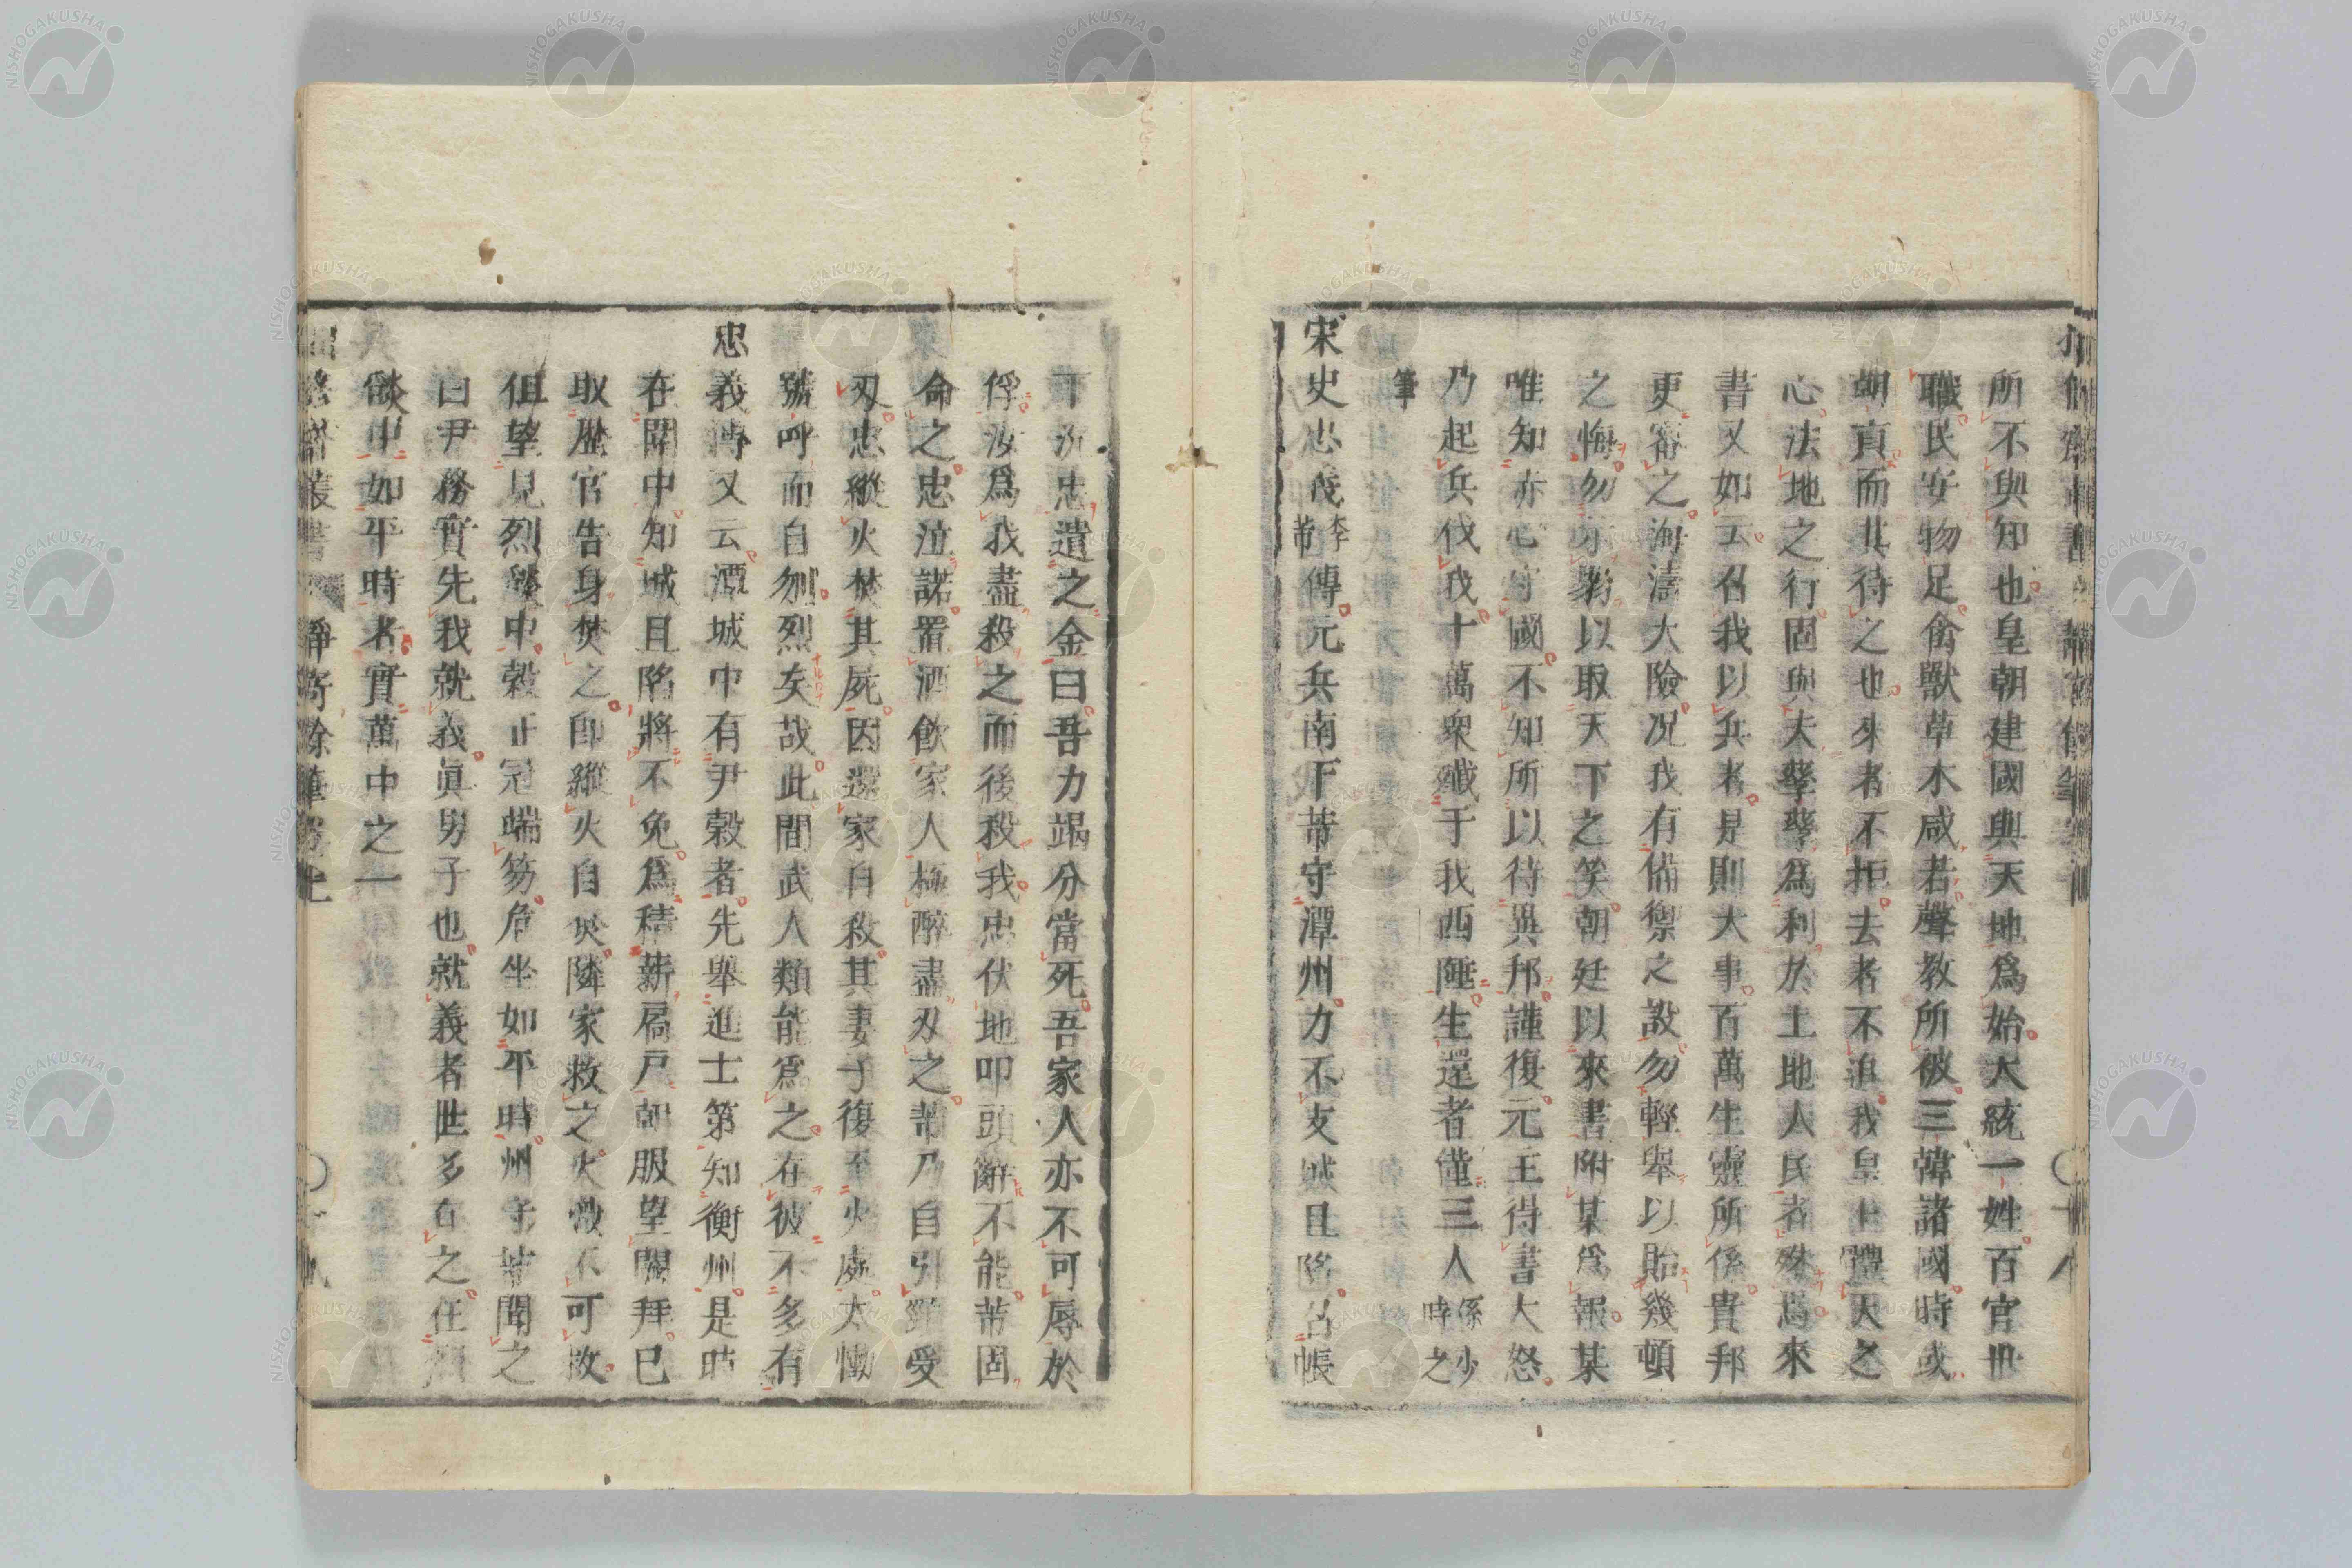 所不與知也皇朝建國與天地爲始大統一姓百官世
職民安物足禽獸草木咸若聲教所被三韓諸國時或
朝貢而其待之也來者不拒去者不追我皇上體天之
心法地之行固與夫孳孳爲利於土地人民者殊焉來
書又如云召我以兵者是則大事百萬生靈所係貴邦
更審之海濤大險况我有備禦之設勿輕舉以貽幾頓
之悔勿以取天下之笑朝廷以來書附某爲報某
唯知赤心守國不知所以待異邦謹復元主得書大怒
乃起兵伐我十萬衆殲于我西陲生還者僅三人係少時之
筆
宋史忠義李芾傳元兵南下芾守潭州力不支城且陷召帳
下沈忠遺之金曰吾力竭分當死吾家人亦不可辱於
俘汝爲我盡殺之而後殺我忠伏地叩頭辭不能芾固
命之忠泣諾置酒飲家人極醉盡刃之芾乃自引頸受
刃忠縱火焚其屍因還家自殺其妻子復至火處大慟
號呼而自刎烈矣哉此間武人類能爲之在彼不多有
忠義傳又云潭城中有尹穀者先舉進士第知衡州是時
在圍中知城且陷將不免爲積薪扃戸朝服望闕拜已
取歴官告身焚之即縱火自焚隣家救之火熾不可救
但望見烈燄中穀正冠端笏危坐如平時州守芾聞之
曰尹務實先我就義真男子也就義者世多有之在烈
燄中如平時者實萬中之一
靜寄餘筆卷上
NISHOGAKUSHA